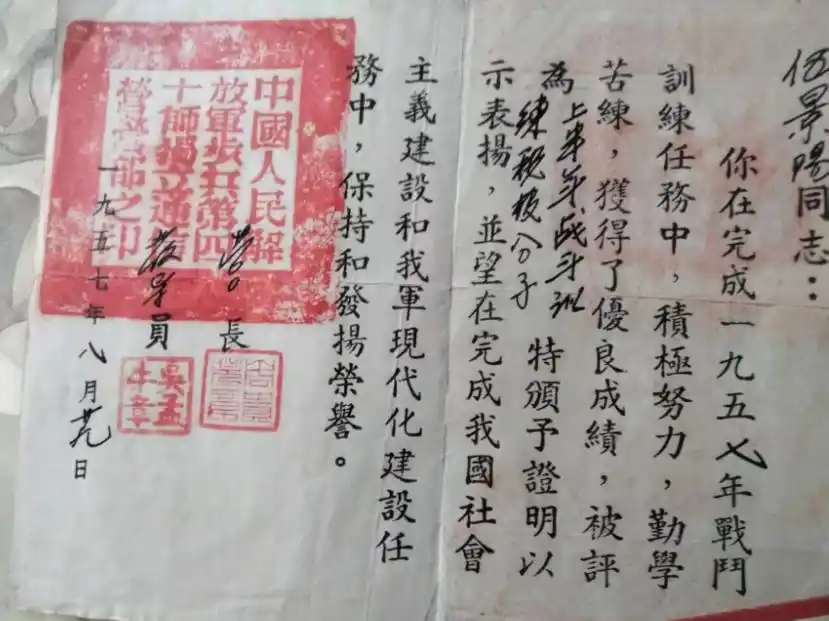 伍景陽同志：
你在完成一九五七年戰鬥
訓練任務中，積極努力，勤學
苦練，獲得了優良成績，被評
為上半年战斗训
练积极分子特頒予證明以
示表揚，並望在完成我國社會
主義建設和我軍現代化建設任
務中，保持和發揚榮譽。
營長
教導員
一九五七年八月廿九日
中國人民解
放軍步兵第四
十師獨立通信
營營部之印
吳孟